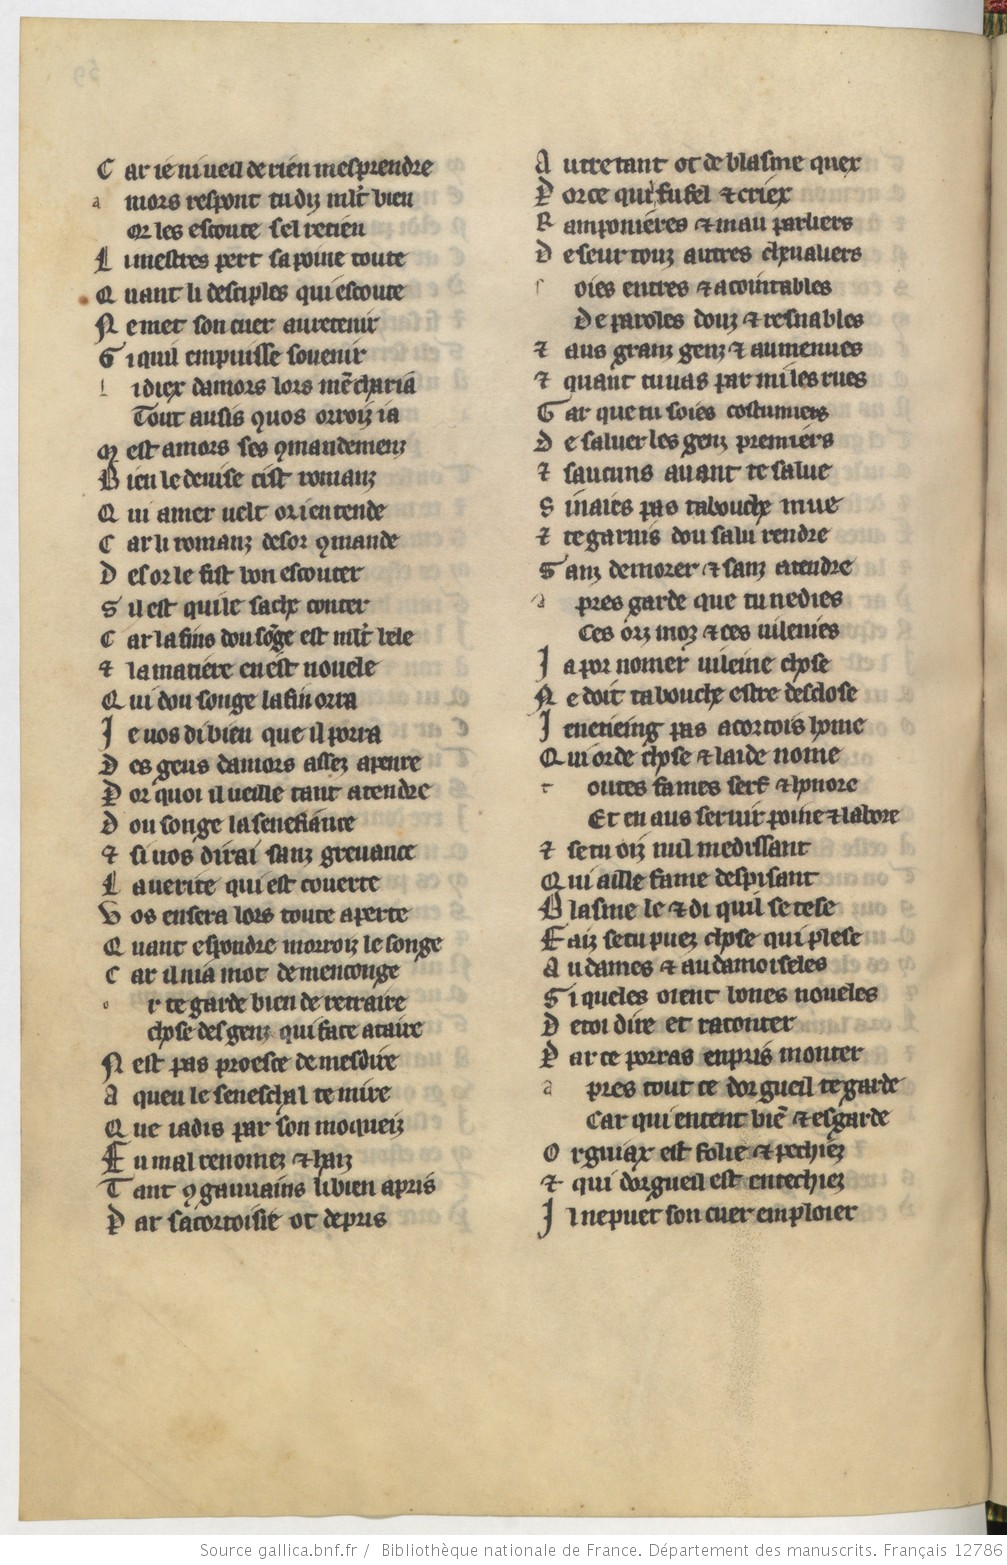 C ar ie ni ueil de rien mesprendre
a mors respont tu diz ml't bien
or les escoute sel retien
L i mestres pert sa poine toute
Q uant li desciples qui escoute
N e met son cuer au retenir
S i quil empuisse souenir
l i diex damors lors mẽ charia
Tout ausis quos orroiz ia
M est amors ses ꝯmandemenz
B ien le deuise cist romanz
Q ui amer uelt or i entende
C ar li romanz desor ꝯmande
D es or le fist bon escouter
S il est qui le sache conter
C ar la fins dou sõge est ml't bele
⁊ la matiere en est nouele
Q ui dou songe la fin orra
J e uos di bien que il porra
D es geus damors assez apenre
P or quoi il ueille tant atendre
D ou songe la senefiance
⁊ si uos dirai sanz greuance
L a uerite qui est couerte
V os ensera lors toute aperte
Q uant espondre morroiz le songe
C ar il ni a mot de menconge
o r te garde bien de retraire
chose des genz qui face ataire
N est pas proesce de mesdire
A queu le seneschal te mire
Q ue iadis par son moqueiz
F u mal renomez ⁊ haiz
T ant ꝯ gauuains li bien apris
P ar sa cortoisie ot de pris
A utretant ot de blasme quex
P or ce qui fu fel ⁊ criex
R amponieres ⁊ mau parliers
D eseur touz autres cheualiers
s oies entres ⁊ acointables
De paroles douz ⁊ resnables
⁊ aus granz genz ⁊ au menues
⁊ quant tu uas par mi les rues
G ar que tu soies costumiers
D e saluer les genz premiers
⁊ saucuns auant te salue
S i naies pas ta bouche mue
⁊ te garnis dou salu rendre
S anz demorer ⁊ sanz atendre
a pres garde que tu ne dies
Ces orz moz ⁊ ces uilenies
J a por nomer uileine chose
N e doit ta bouche estre desclose
J e ne tieing pas a cortois home
Q ui orde chose ⁊ laide nome
t outes fames serf ⁊ honore
Et en aus seruir poine ⁊ labore
⁊ se tu oiz nul medissant
Q ui aille fame despisant
B lasme le ⁊ di quil se tese
F aiz se tu puez chose qui plese
A u dames ⁊ au damoiseles
S i queles oient bones noueles
D e toi dire et raconter
P ar ce porras en pris monter
a pres tout ce dorgueil te garde
Car qui entent biẽ ⁊ esgarde
O rguiax est folie ⁊ pechiez
⁊ qui dorgueil est entechiez
J l ne puet son cuer emploier
Source gallica.bnf.fr / Bibliothèque nationale de France. Département des manuscrits. Français 12786